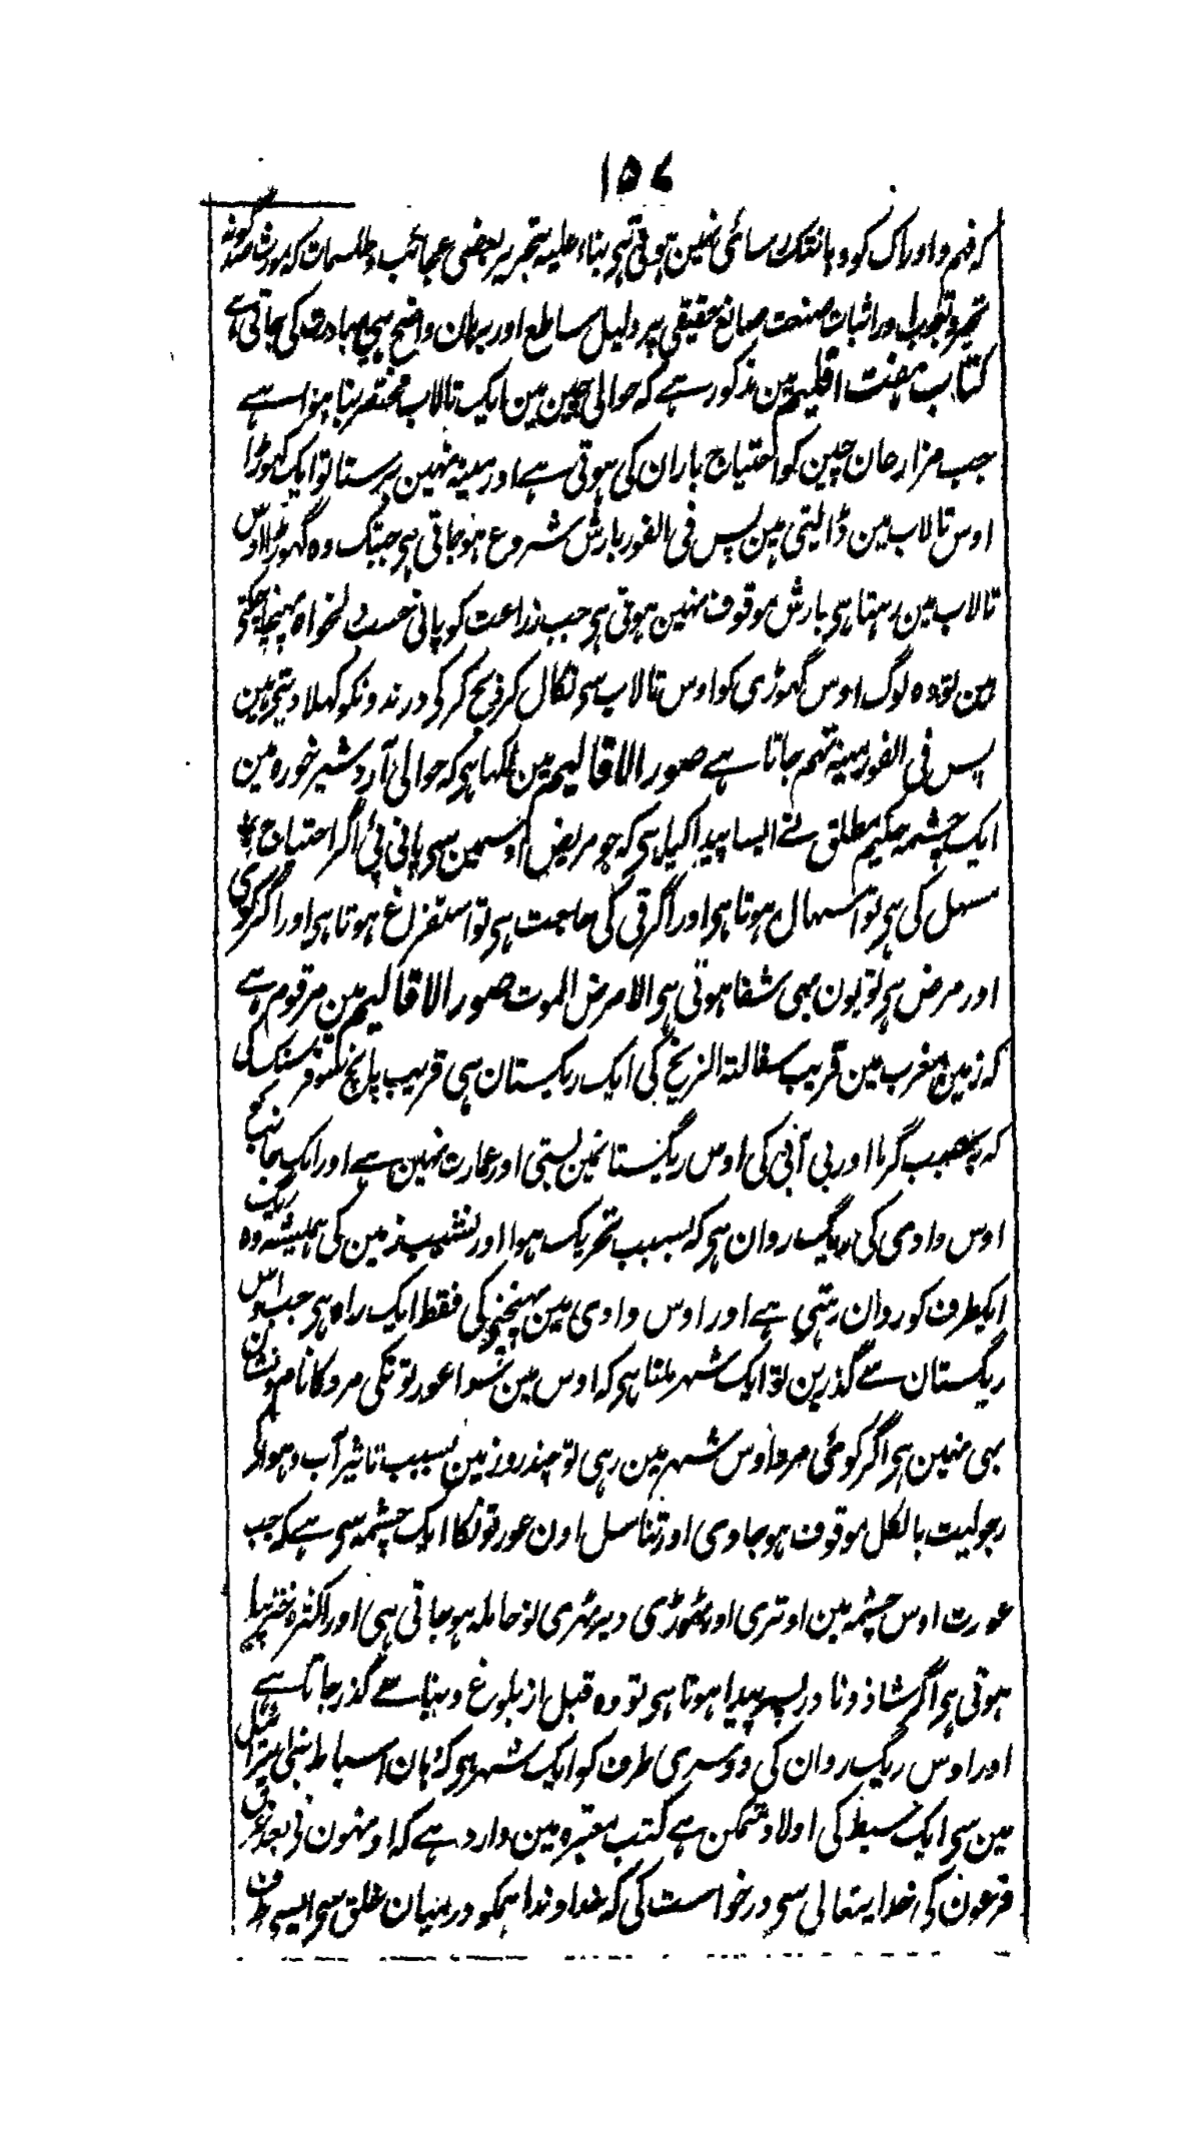 ۱۵۷
کہ فہم و ادراک کو وہانتک رسائی نہین ہوتی ہی بناء علیہ بتحریر بعضی عجائب و طلسمات کہ مورث صد گونہ
تحیر و تعجب اور اثبات صنعت صانع حقیقی پر دلیل ساطع اور برہان واضح ہی مبادرت کی جاتی ہے
کتاب ہفت اقلیم مین مذکور ہے کہ حوالی چین مین ایک تالاب مختصر بنا ہوا ہے
جب مزارعان چین کو احتیاج باران کی ہوتی ہے اور مینہ نہین برستا تو ایک گہوڑا
اوس تالاب مین ڈالتی ہین پس فی الفور بارش شروع ہو جاتی ہی جبتک وہ گہوڑا اوس
تالاب مین رہتا ہی بارش موقوف نہین ہوتی ہی جب زراعت کو پانی حسب دلخواہ پہنچ چکتی
ہین تو وہ لوگ اوس گہوڑی کو اوس تالاب سی نکال کر ذبح کر کی درندونکو کہلا دیتی ہین
پس فی الفور مینہ تہم جاتا ہے صور الاقالیم مین لکہا ہی کہ حوالی آردشیر خورہ مین
ایک چشمہ حکیم مطلق نے ایسا پیدا کیا ہی کہ جو مریض اوسمین سی پانی پئی اگر احتیاج
مسہل کی ہی تو اسہال ہوتا ہی اور اگر قی کی حاجت ہی تو استفراغ ہوتا ہی اور اگر کوئی
اور مرض ہی تو یون بہی شفا ہوتی ہی الا مرض الموت صور الاقالیم مین مرقوم ہے
کہ زمین مغرب مین قریب سفالۃ الزنج کی ایک ریگستان ہی قریب پانچ سو فرسنگ کی
کہ بسبب گرما اور بی آبی کی اوس ریگستانمین بستی اور عمارت نہین ہے اور ایک جانب
اوس وادی کی ریگ روان ہی کہ بسبب تحریک ہوا اور نشیب زمین کی ہمیشہ وہ ریگ
ایکطرف کو روان رہتی ہے اور اوس وادی مین پہنچنی کی فقط ایک راہ ہی جب اوس
ریگستان سے گذرین تو ایک شہر ملتا ہی کہ اوس مین سوا عورتونکی مرد کا نام و نشان
بہی نہین ہی اگر کوئی مرد اوس شہر مین رہی تو چند روز مین بسبب تاثیر آب و ہوا کی
رجولیت بالکل موقوف ہو جاوی اور تناسل اون عورتونکا ایک چشمہ سی ہے کہ جب
عورت اوس چشمہ مین اوتری اور تہوڑی دیر ٹہری تو حاملہ ہو جاتی ہی اور اکثرہ دختر پیدا
ہوتی ہی اگر شاذ و نادر پسر پیدا ہوتا ہی تو وہ قبل از بلوغ دنیا سے گذر جاتا ہے
اور اوس ریگ روان کی دوسری طرف کو ایک شہر ہی کہ وہان اسباط بنی اسرائیل
مین سی ایک سبط کی اولاد متمکن ہے کتب معتبرہ مین وارد ہے کہ اونہون نی بعد غرق
فرعون کی خدا یتعالی سی درخواست کی کہ خداوندا ہمکو درمیان خلق سی ایسی طرف